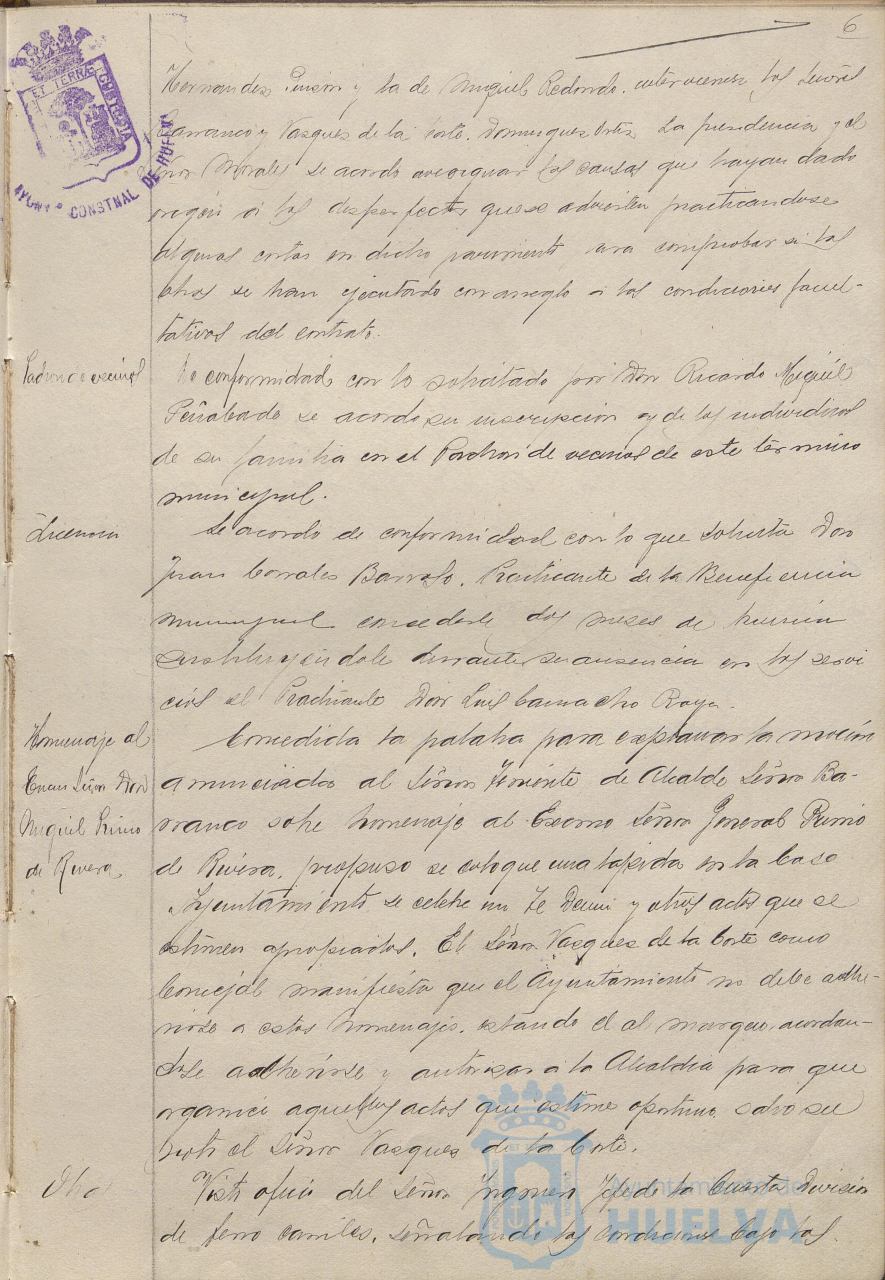 6
ET TERRÆ CUSTODIA
AYUNTº CONSTNAL DE HUELVA
Hernandez Pinzon y la de Miguel Redondo. intervienen los Señores
Carranco y Vasques de la Corte. Domingues Ortiz la presidencia y el
Señor Morales se acordo averiguar las causas que hayan dado
origen a los desperfectos que se advierten practicandose
algunas cortas en dicho pavimento para comprobar si las
obras se han ejecutado con arreglo a las condiciones facul-
tativas del contrato.
Padron de vecinos
De conformidad con lo solicitado por Don Ricardo Miguel
Peñalbade se acordo su inscripcion y de los individuos
de su familia en el Padron de vecinos de este término
municipal.
Licencia
Se acordo de conformidad con lo que solicita Don
Juan Corrales Barroso, Practicante de la Beneficencia
municipal concederle dos meses de licencia
sustituyendole durante su ausencia en los servi
cios el Practicante Don Luis Camacho Raya.
Homenaje al
Excmo Señor Don
Miguel Primo
de Rivera
Concedida la palabra para explanar la moción
anunciada al Señor Teniente de Alcalde Señor Ba-
rranco sobre homenaje al Excmo Señor General Primo
de Rivera, propuso se coloque una lapida en la Casa
Ayuntamiento se celebre un Te Deum y otros actos que se
estimen apropiados. El Señor Vasques de la Corte como
Concejal manifiesta que el Ayuntamiento no debe adhe-
rirse a estos homenajes, estando el al margen, acordan-
dose adherirse y autorizar a la Alcaldia para que
organice aquellos actos que estime oportuno salvo su
voto el Señor Vasques de la Corte.
Visto oficio del Señor Ingeniero Jefe de la Cuarta Division
de ferro carriles, señalando las condiciones bajo las
Ayuntamiento de
HUELVA